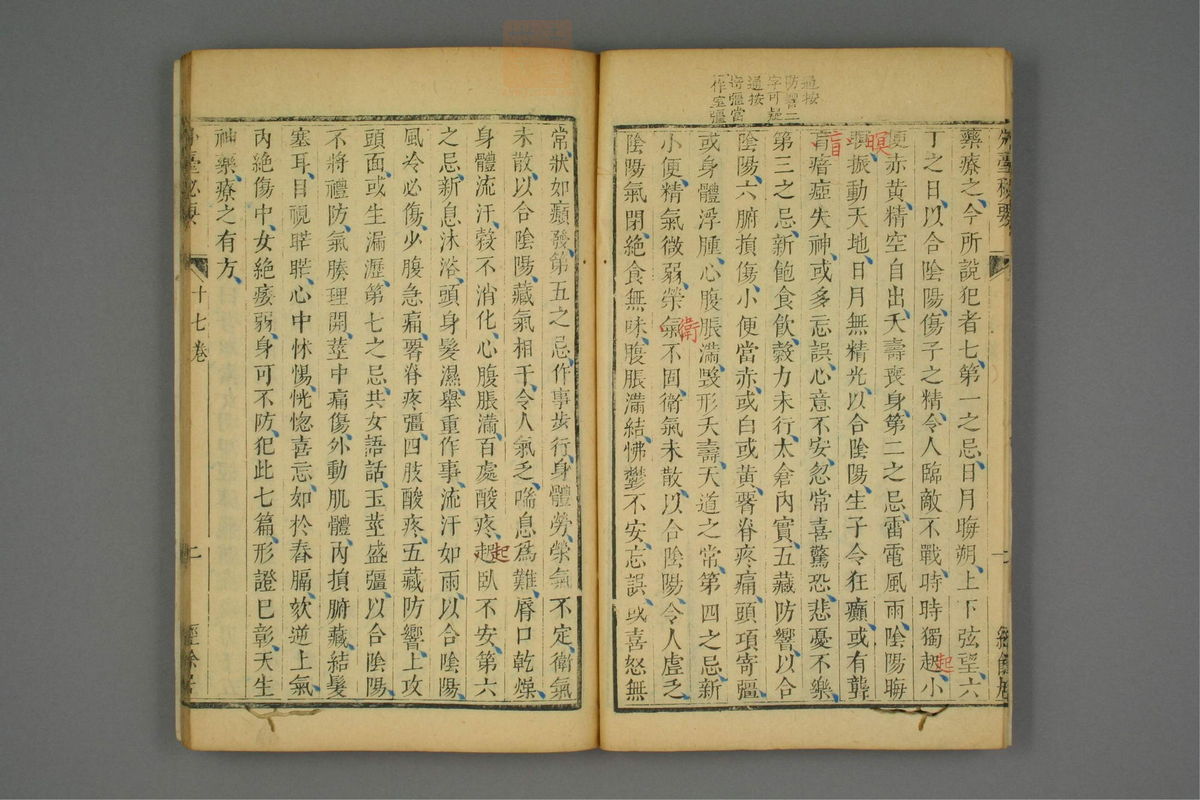 通按
防響二
字可疑
通按
寄彊當
作室彊
藥療之今所說犯者七第一之忌日月晦朔上下弦望六
丁之日以合陰陽傷子之精令人臨敵不戰時時獨起小
起
便赤黃精空自出夭壽喪身第二之忌雷電風雨陰陽晦
暝
振動天地日月無精光以合陰陽生子令狂癲或有聾
盲
盲瘖瘂失神或多忘誤心意不安忽常喜驚恐悲憂不樂
第三之忌新飽食飲穀力未行太倉內實五藏防響以合
陰陽六腑損傷小便當赤或白或黃䐴脊疼痛頭項寄彊
或身體浮腫心腹脹滿毀形夭壽天道之常第四之忌新
小便精氣微弱榮氣不固衛氣未散以合陰陽令人虛乏
衛
陰陽氣閉絕食無味腹脹滿結怫鬱不安忘誤或喜怒無
常狀如癲發第五之忌作事步行身體勞榮氣不定衛氣
未散以合陰陽藏氣相干令人氣乏喘息為難脣口乾燥
身體流汗穀不消化心腹脹滿百處酸疼起臥不安第六
起
之忌新息沐浴頭身髮濕舉重作事流汗如雨以合陰陽
風冷必傷少腹急痛䐴脊疼彊四肢酸疼五藏防響上攻
頭面或生漏瀝第七之忌共女語話玉莖盛彊以合陰陽
不將禮防氣腠理開莖中痛傷外動肌體內損腑藏結髮
塞耳目視䀮䀮心中怵惕恍惚喜忘如杵舂膈欬逆上氣
內絕傷中女絕痿弱身可不防犯此七篇形證已彰天生
神藥療之有方
十七卷
二
經餘居